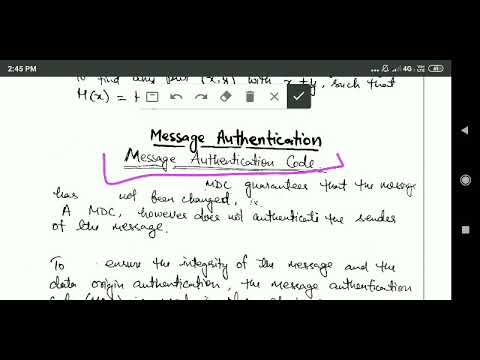 2:45 PM
4G
To find any pair (x, y) with x ≠ y, such that
H(x) =
Message Authentication
Message Authentication Code
MDC guarantees that the message
has not been changed,
A MDC, however does not authenticate the sender
of the message.
To ensure the integrity of the message and the
data origin authentication, the message authentication